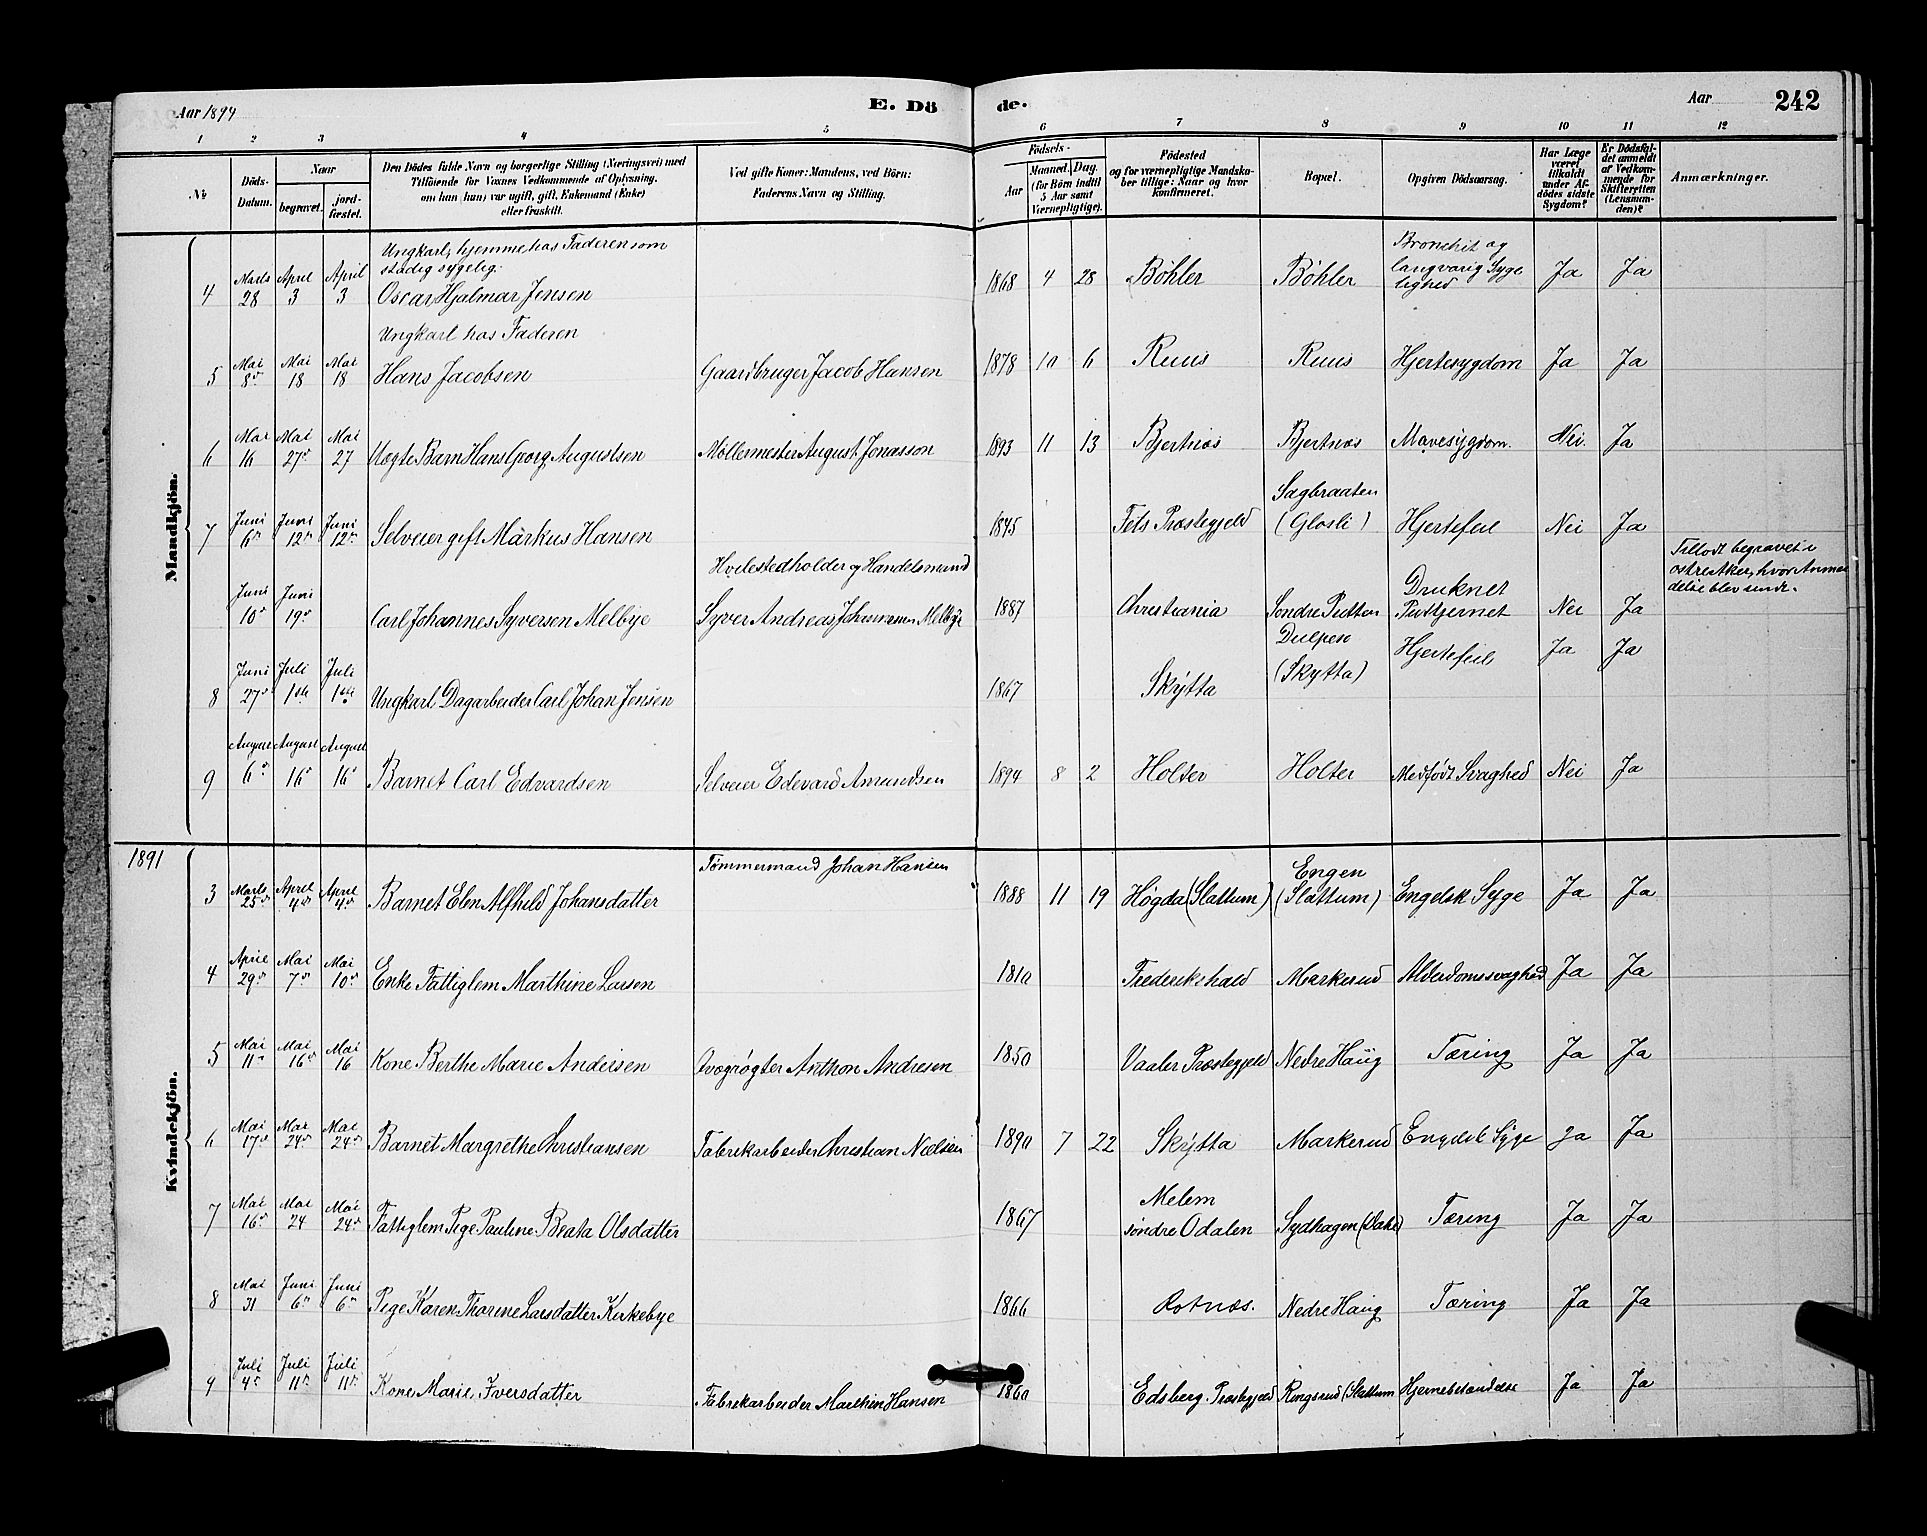 Aar 1894
E. Dö
de.
Aar
242
1 2 3 4 5 6 7 8 9 10 11 12
№
Döds-Datum.
Naar
begravet.
jord-fæstet.
Den Dödes fulde Navn og borgerlige Stilling (Næringsvei) med
Tilföiende for Voxnes Vedkommende af Oplysning,
om han (hun) var ugift, gift, Enkemand (Enke)
eller fraskilt.
Ved gifte Koner: Mandens, ved Börn:
Faderens Navn og Stilling.
Födsels-
Aar
Maaned. Dag.
(for Börn indtil
5 Aar samt
Værnepligtige).
Födested
og for værnepligtige Mandska-
ber tillige: Naar og hvor
konfirmeret.
Bopæl.
Opgiven Dödsaarsag.
Har Læge
været
tilkaldt
under Af-
dödes sidste
Sygdom?
Er Dödsfal-
det anmeldt
af Vedkom-
mende for
Skifteretten
(Lensman-
den)?
Anmærkninger.
Mandkjön.
Ungkarl, hjemme hos Faderen som
stadig sygelig.
4 Marts 28 April 3 April 3 Oscar Hjalmar Jensen 1868 4 28 Bøhler Bøhler Bronchit og langvarig Sygelighed Ja Ja
Ungkarl hos Faderen
5 Mai 8 Mai 18 Mai 18 Hans Jacobsen Gaardbruger Jacob Hansen 1878 10 6 Ruus Ruus Hjertesygdom Ja Ja
6 Mai 16 Mai 27 Mai 27 Uægte Barn Hans Georg Augustsen Møllermester August Jonasson 1893 11 13 Bjertnæs Bjertnæs Mavesygdom. Nei Ja
7 Juni 6 Juni 12 Juni 12 Selveier gift Markus Hansen 1845 Fets Præstegjeld Sagbraaten (Glosli) Hjertefeil Nei Ja
Hvilestedholder og Handelsmand
Juni 10 Juni 19 Carl Johannes Syversen Melbye Syver Andreas Johannesen Melbye 1887 Christiania Søndre Putten Druknet Puttjernet Nei Ja
Tillodt begravet i
østre Aker, hvor Anmel
delse blev sendt.
8 Juni 27 Juli 1ste Juli 1ste Ungkarl Dagarbeider Carl Johan Jensen 1867 Skÿtta (Skytta) Hjertefeil Ja Ja
9 August 6 August 16 August 16 Barnet Carl Edvardsen Selveier Edevard Amundsen 1894 8 2 Holter Holter Medfødt Svaghed Nei Ja
1891
Kvindekjön.
Tømmermand Johan Hansen
3 Marts 25 April 4 April 4 Barnet Elen Alfhild Johansdatter 1888 11 19 Høgda (Slattum) Engen (Slattum) Engelsk Syge Ja Ja
4 April 29 Mai 7 Mai 10 Enke Fattiglem Marthine Larsen 1810 Frederikshald Markerud Alderdomssvaghed Ja Ja
5 Mai 11 Mai 16 Mai 16 Kone Berthe Marie Andersen Qvægrøgter Anthon Andresen 1850 Vaaler Præstegjeld Nedre Haug Tæring Ja Ja
6 Mai 17 Mai 24 Mai 24 Barnet Margrethe Christiansen Fabrikarbeider Christian Nielsen 1890 7 22 Skÿtta Markerud Engelsk Syge Ja Ja
7 Mai 16 Mai 24 Mai 24 Fattiglem Pige Pauline Beata Olsdatter 1867 Melem søndre Odalen Sydhagen Tæring Ja Ja
8 Mai 31 Juni 6 Juni 6 Pige Karen Thorine Larsdatter Kirkebye 1866 Rotnæs. Nedre Haug Tæring Ja Ja
9 Juli 4 Juli 11 Juli 11 Kone Marie Iversdatter Fabrikarbeider Marthin Hansen 1860 Edsberg Præstegjeld Ringsrud (Slattum Hjernebetændelse Ja Ja